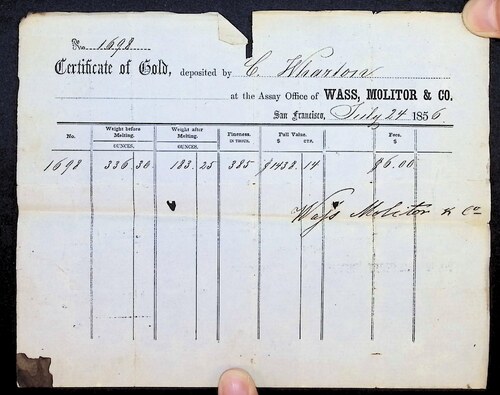 No. 1698
Certificate of Gold, deposited by C. Wharton
at the Assay Office of WASS, MOLITOR & CO.
San Francisco, July 24 1856.
No. Weight before Melting. Weight after Melting. Fineness. Full Value. Fees.
OUNCES. OUNCES. IN THOUS. $ CTS. $
1698 336.30 183.25 385 $1438.14 $6.00
Wass Molitor & Co